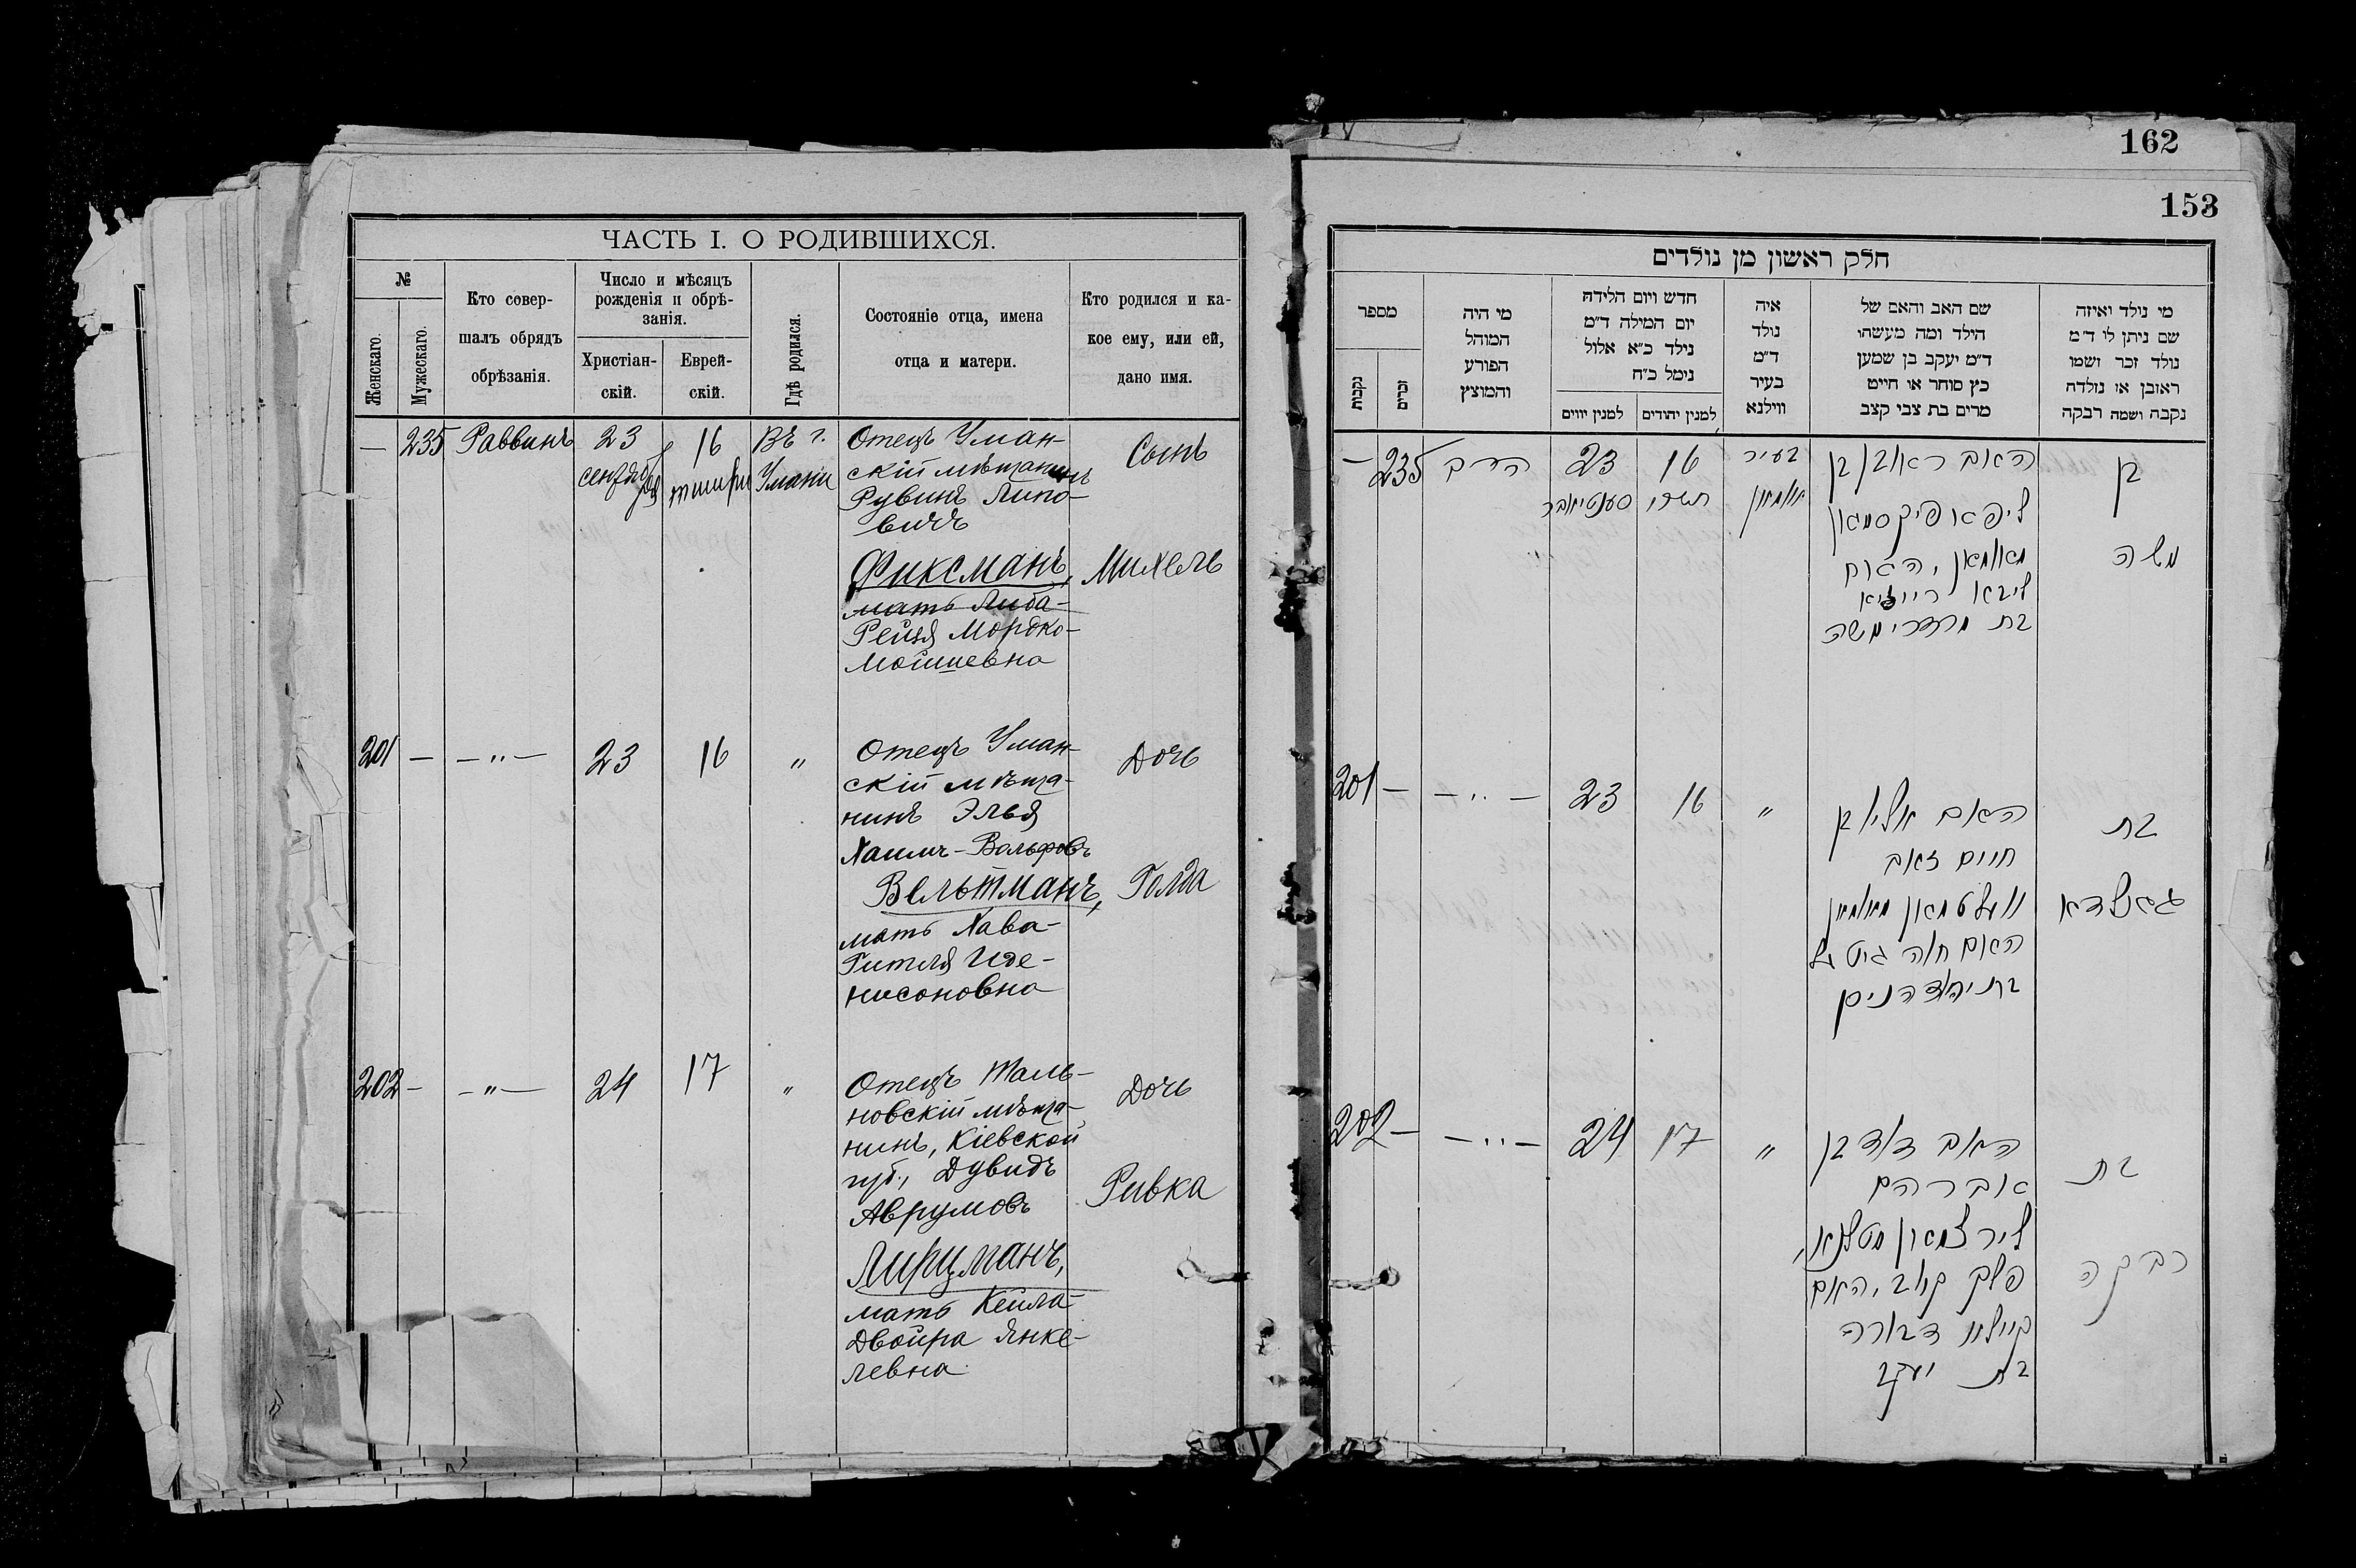 162
153
ЧАСТЬ I. О РОДИВШИХСЯ.
№
Женскаго.
Мужескаго.
Кто совер-
шалъ обрядъ
обрѣзанія.
Число и мѣсяцъ
рожденія и обрѣ-
занія.
Христіан-
скій.
Еврей-
скій.
Гдѣ родился.
Состояніе отца, имена
отца и матери.
Кто родился и ка-
кое ему, или ей,
дано имя.
— 235 Раввинъ 23 16 Въ г. Отецъ Уман- Сынъ
сентября тишри Умани скій мѣщанинъ
Рувинъ Липо-
вичъ
Фиксманъ, Михель
мать Либа-
Рейзя Мордко-
Мошиевна
201 — — " — 23 16 " Отецъ Уман- Дочь
скій мѣща-
нинъ Элья
Хаимъ-Вольфовъ
Вельтманъ, Голда
мать Хава-
Гитля Иде-
нисоновна
202 — — " — 24 17 " Отецъ Таль- Дочь
новскій мѣща-
нинъ, Кіевской
губ., Дувидъ
Аврумовъ Ривка
Лирцманъ,
мать Кейла-
Двойра Янке-
левна
חלק ראשון מן נולדים
מספר
נקבות
זכרים
מי היה
המוהל
הפורע
והמוצץ
חדש ויום הלידה
יום המילה ד"מ
נילד כ"א אלול
נימל כ"ח
למנין יווים
למנין יהודים
איה
נולד
ד"מ
בעיר
ווילנא
שם האב והאם של
הילד ומה מעשהו
ד"מ יעקב בן שמען
כץ סוחר או חייט
מרים בת צבי קצב
מי נולד ואיזה
שם ניתן לו ד"מ
נולד זכר ושמו
ראובן או נולדה
נקבה ושמה רבקה
— 235 הרב 23 16 בעיר האב ראובן בן בן
סענטיאבר תשרי אומאן ליפא פיקסמאן
מאומאן, האם משה
ליבא רייזיא
בת מרדכי משה
201 — — " — 23 16 " האב אליו בן בת
חיים זאב
וועלטמאן מאומאן גאלדא
האם חוה גיטל
202 — — " — 24 17 " האב דוד בן בת
אברהם
לירצמאן מטלנא,
פלך קיוב, האם רבקה
קיילא דבורה
בת יעקב